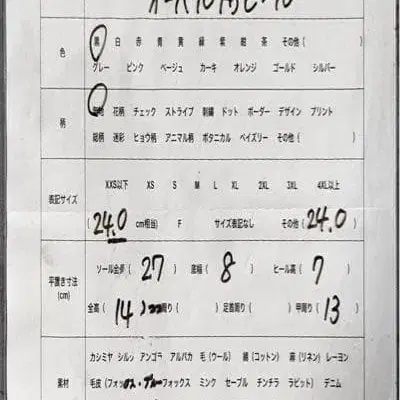 色
黒 白 赤 青 黄 緑 紫 紺 茶 その他(
グレー ピンク ベージュ カーキ オレンジ ゴールド シルバー
柄
無地 花柄 チェック ストライプ 刺繍 ドット ボーダー デザイン プリント
総柄 迷彩 ヒョウ柄 アニマル柄 ボタニカル ペイズリー その他(
表記サイズ
XXS以下 XS S M L XL 2XL 3XL 4XL以上
(24.0 cm相当) F サイズ表記なし その他(24.0)
平置き寸法
(cm)
ソール全長( 27 ) 底幅( 8 ) ヒール高( 7 )
全高( 14 ) 周り( ) 足首周り( ) 甲周り( 13 )
素材
カシミヤ シルク アンゴラ アルパカ 毛(ウール) 綿(コットン) 麻(リネン) レーヨン
毛皮(フォックス・ブルーフォックス ミンク セーブル チンチラ ラビット) デニム